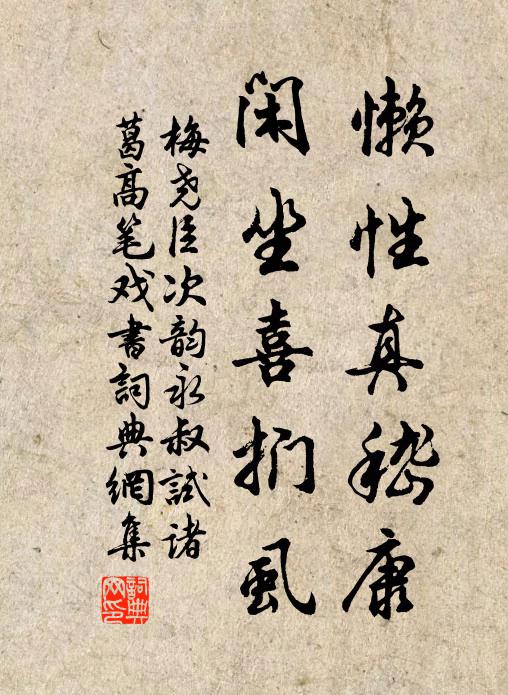 懒性真嵇康
闲坐喜扪虱
梅尧臣次韵永叔試诸
葛高笔戏書詞典網集
詞典